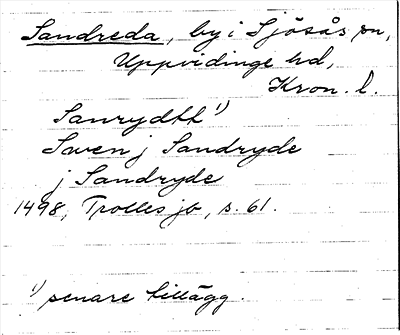 Sandreda, by i Sjösås sn,
Uppvidinge hd,
Kron. l.
Sanrydtt 1)
Swen j Sandryde
j Sandryde
1498, Trolles jb, s. 61.
1) senare tillägg.